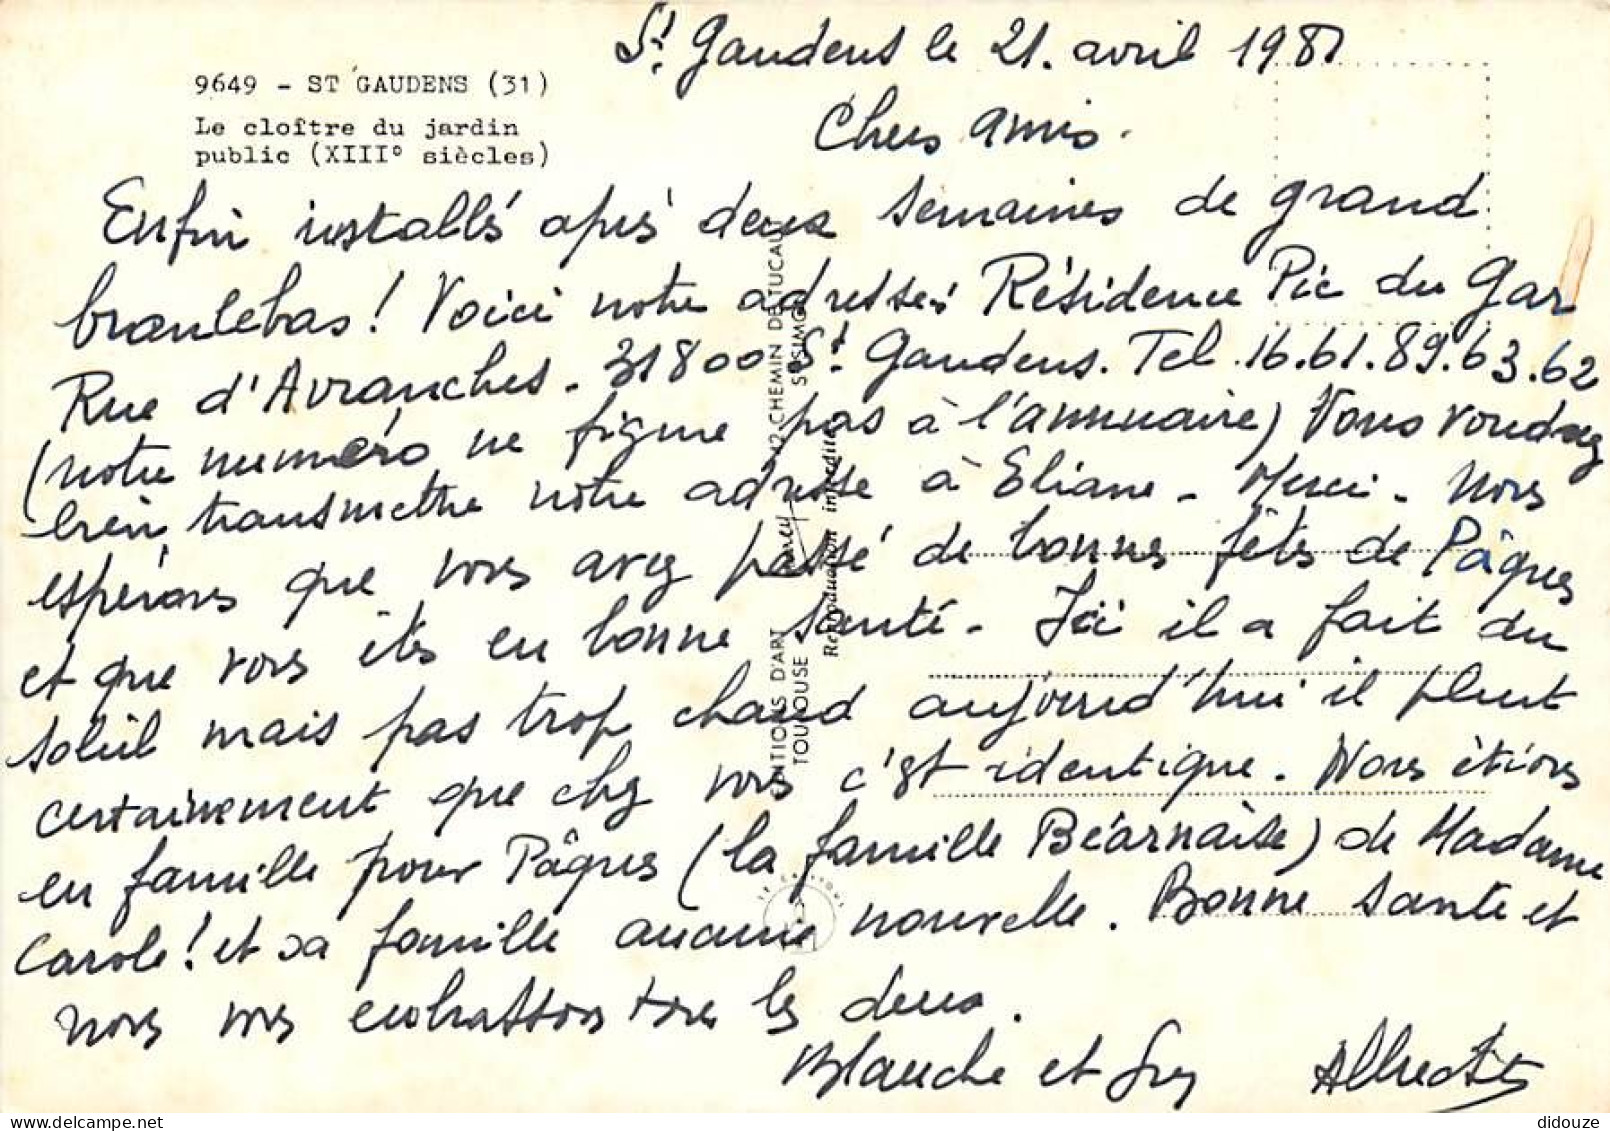 St Gaudens le 21. avril 198
9649 - ST GAUDENS (31)
Le cloître du jardin
public (XIII° siècles)
Chers amis.
Enfin installés après deux semaines de grand
branlebas! Voici notre adresse: Résidence Pic du Gar
Rue d'Avranches - 31800 St Gaudens. Tel. 16.61.89.63.62
(notre numéro ne figure pas à l'annuaire) Vous voudrez
bien transmettre notre adresse à Eliane - Merci - Nous
espérons que vous avez passé de bonnes fêtes de Pâques
et que vous êtes en bonne santé - Ici il a fait du
soleil mais pas trop chaud aujourd'hui il pleut
certainement que chez vous c'est identique. Nous étions
en famille pour Pâques (la famille Béarnaise) de Madame
Carole! et sa famille aucune nouvelle. Bonne santé et
nous vous embrassons tous les deux.
Blanche et Guy
42 CHEMIN DE TUCAUT
S/SIMON
Reproduction interdite
TIONS D'ART
TOULOUSE
didouze